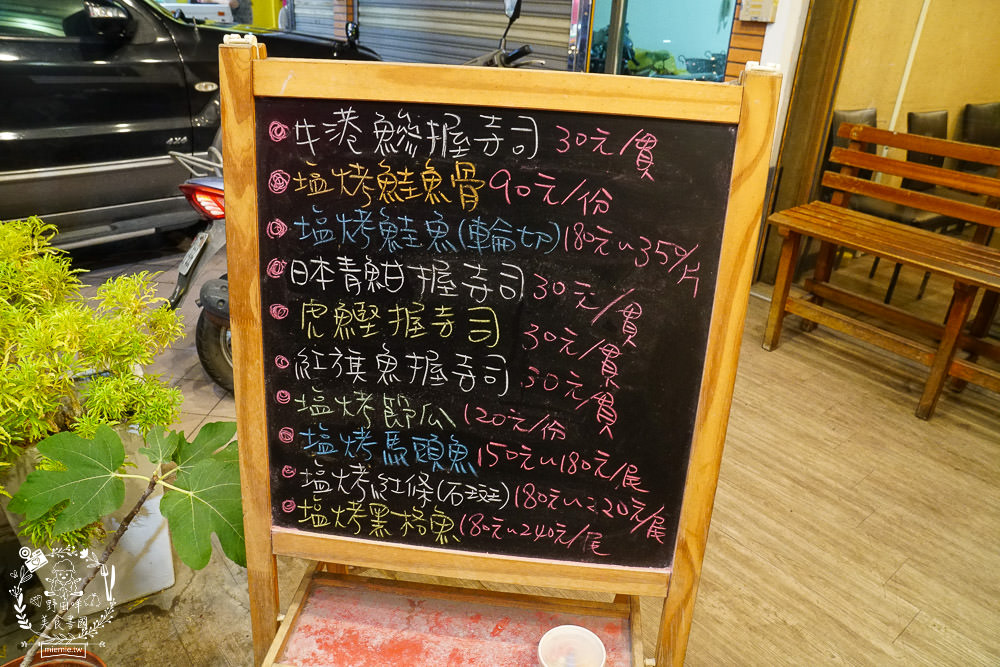 牛港鰺握寺司 30元/貫
塩烤鮭魚骨 90元/份
塩烤鮭魚(輪切)180元~350/片
日本青魽握寺司 30元/貫
虎鰹握寺司 30元/貫
紅旗魚握寺司 30元/貫
塩烤節瓜 120元/份
塩烤馬頭魚 150元~180元/尾
塩烤紅條(石斑)180元~220元/尾
塩烤黑格魚 180元~240元/尾
美食書園
miemie.tw